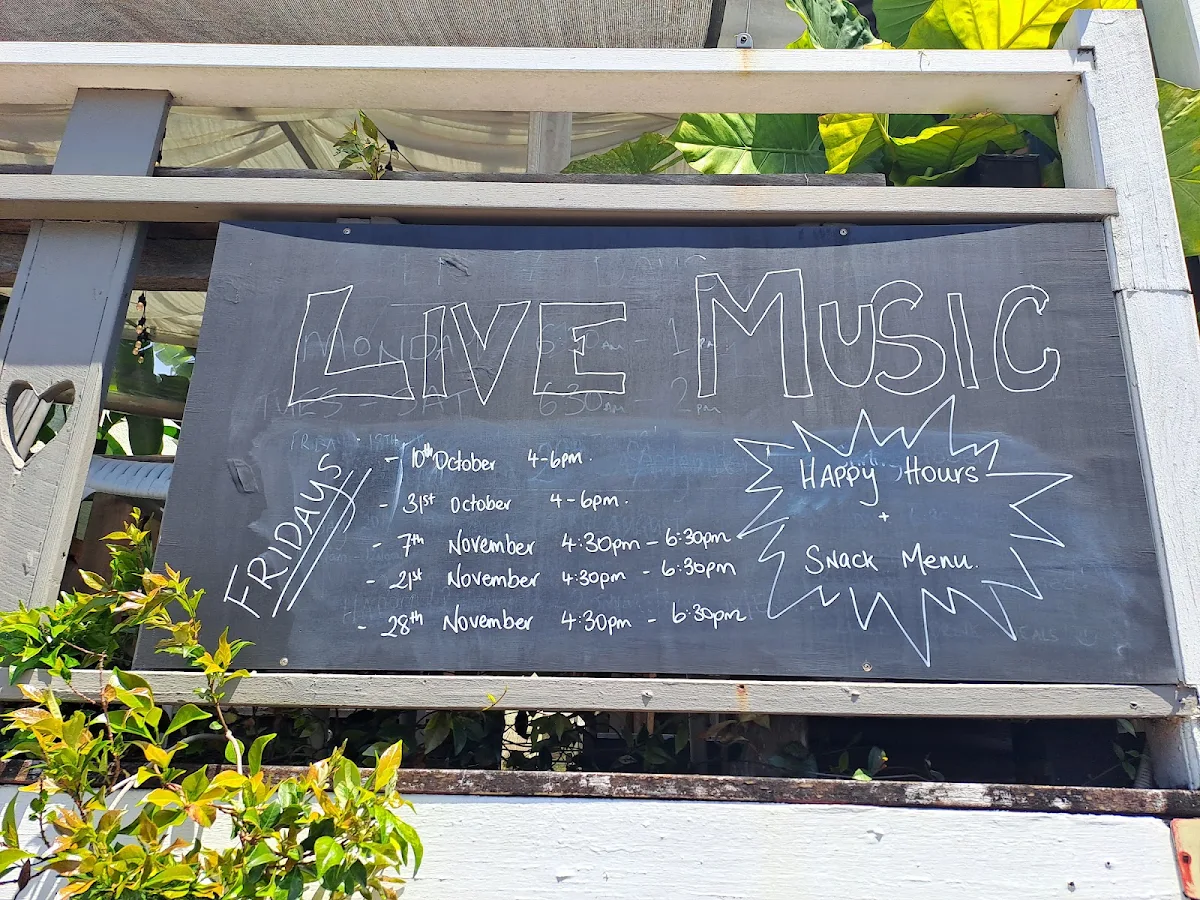 LIVE MUSIC
FRIDAYS
- 10th October 4-6pm.
- 31st October 4-6pm.
- 7th November 4:30pm - 6:30pm
- 21st November 4:30pm - 6:30pm
- 28th November 4:30pm - 6:30pm
HAPPy Hours
+
Snack Menu.
MONDAY 630am - 1pm
TUES - SAT 630am - 2pm